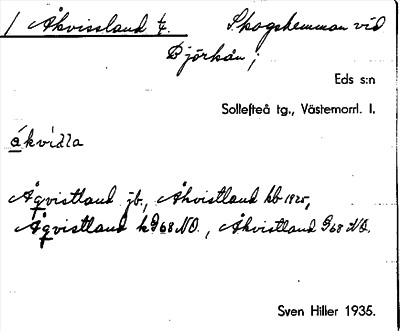 / Åkvissland tf. Skogshemman vid
Björkån;
Eds s:n
Sollefteå tg., Västernorrl. l.
ákvìlla
Åqvistland jb., Åkvistland kb 1825,
Åqvistland k G68 NO., Åkvistland G68 NO.
Sven Hiller 1935.